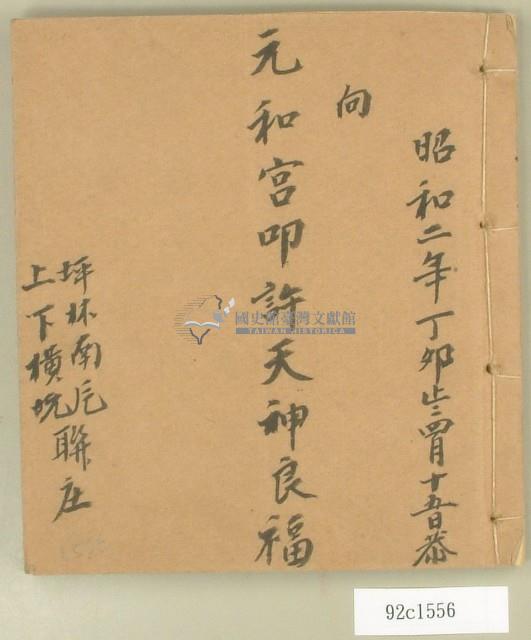 昭和二年丁卯歲四月十五日恭
向
元和宮叩許天神良福
坪林南片聯庄
上下橫坑
國史館臺灣文獻館
TAIWAN HISTORICA
92c1556